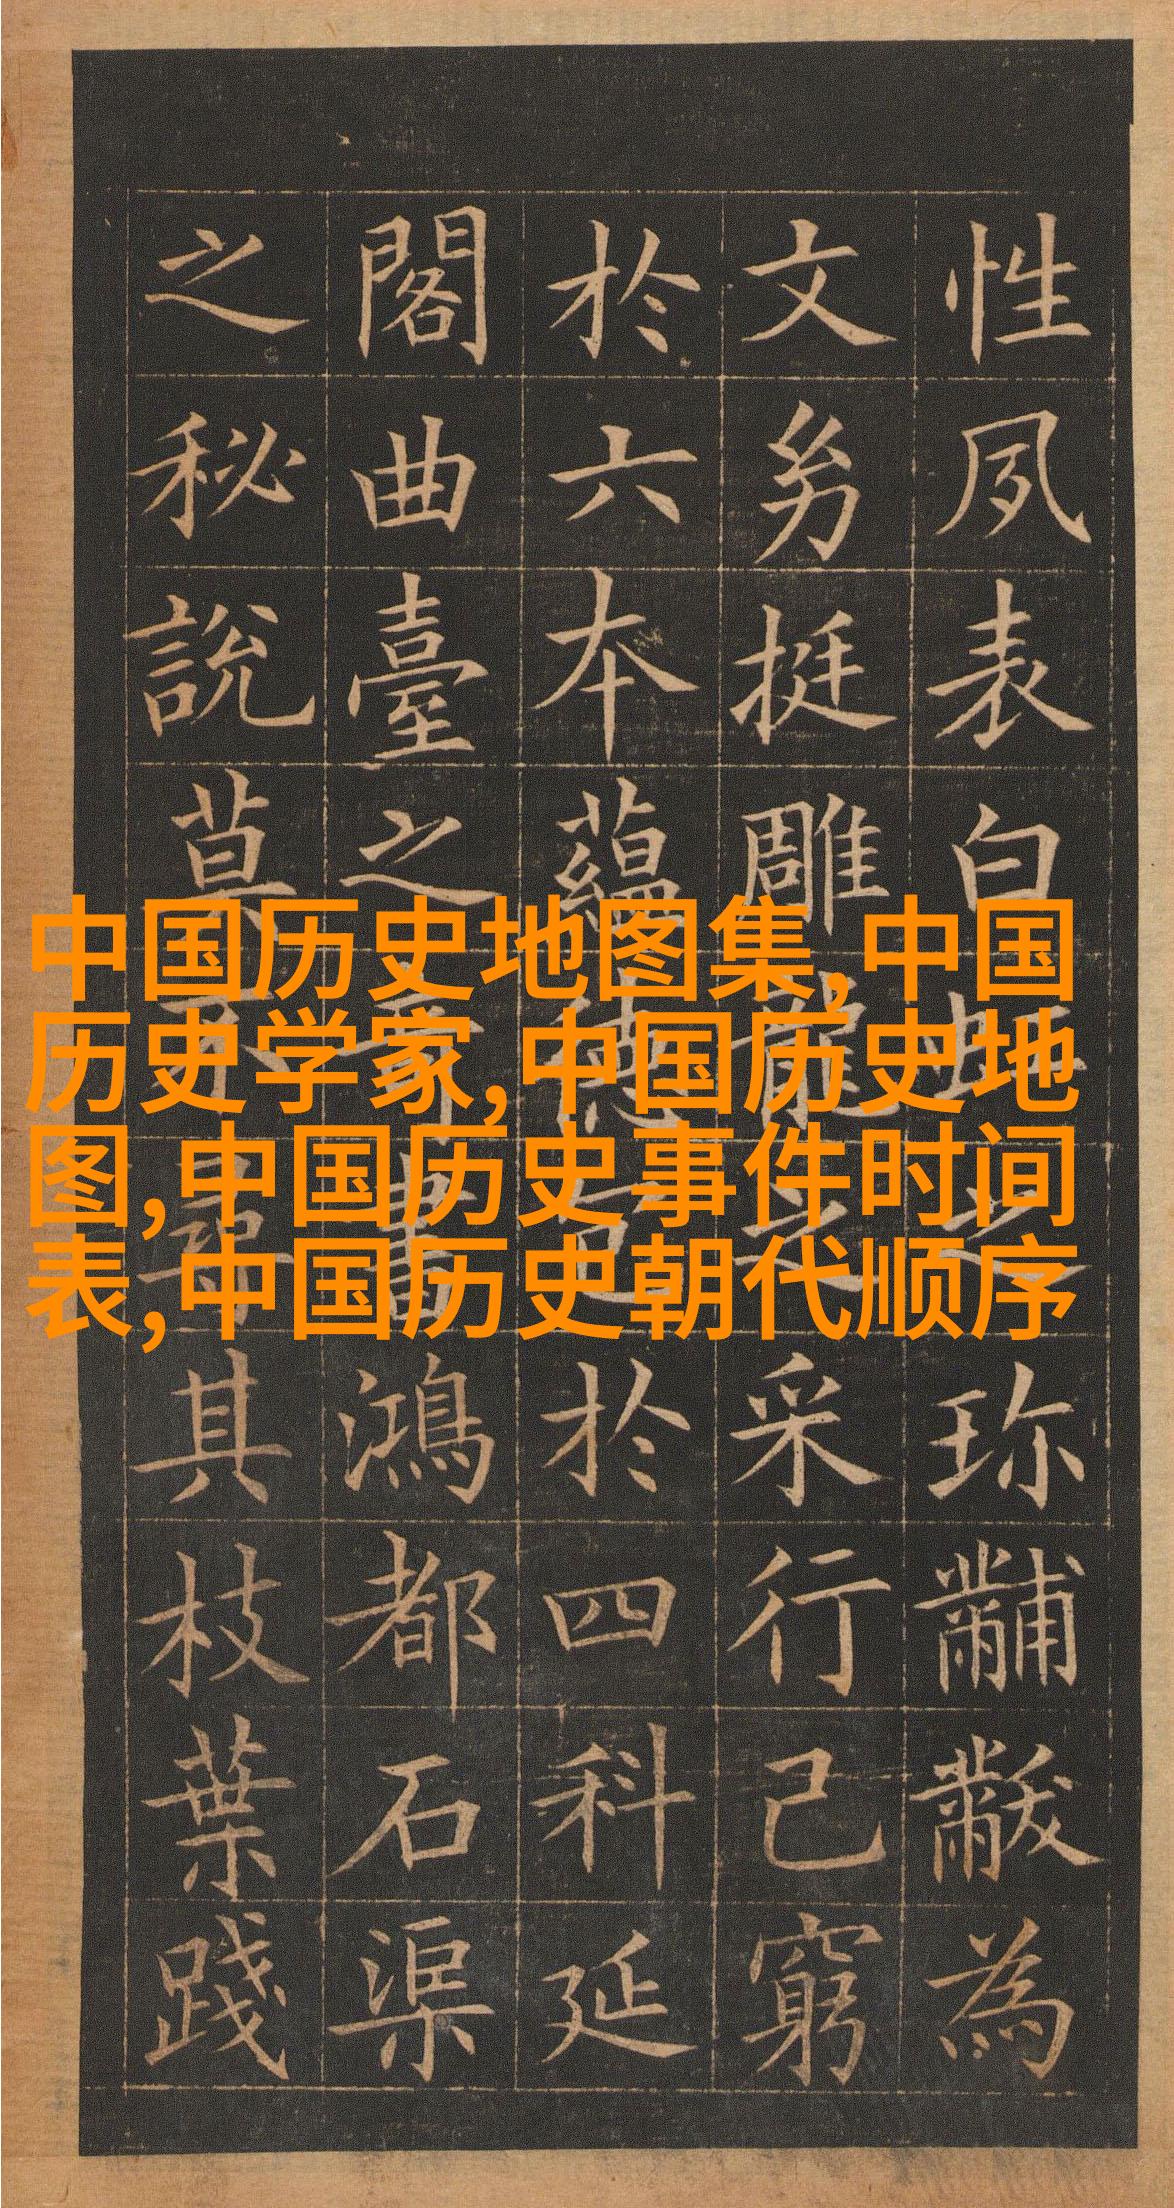 性夙表白虹之珍黼黻為
文幼挺雕龍之采行己窮
於六本蘊德包於四科延
閣曲臺之奇書鴻都石渠
之秘說莫不尋其枝葉踐
中国历史地图集,中国
历史学家,中国历史地
图,中国历史事件时间
表,中国历史朝代顺序